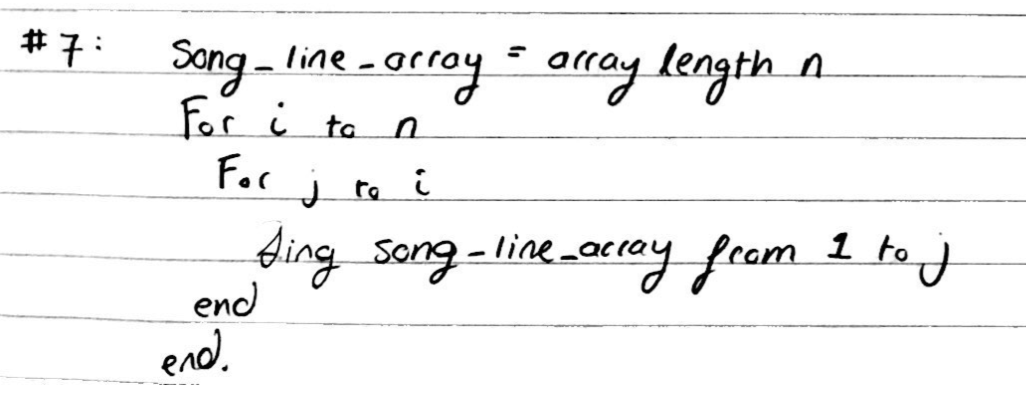 #7: Song_line_array = array length n
For i to n
For j to i
Sing song_line_array from 1 to j
end
end.